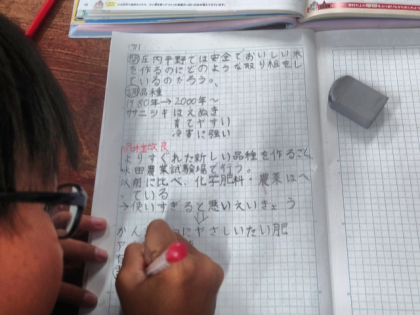 庄内平野では安全でおいしい米
を作るのにどのような取り組をし
ているのだろう。
品種
1980年→2000年〜
ササニシキ はえぬき
育てやすい
冷害に強い
品種改良
よりすぐれた新しい品種を作ること
水田農業試験場で行う。
以前に比べ、化学肥料・農薬はへ
ている
→使いすぎると悪いえいきょう
かん
にやさしいたい肥